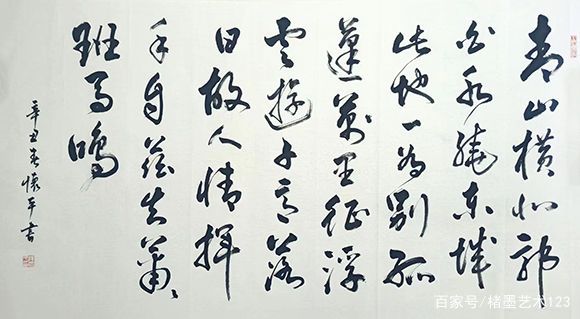 青山横北郭
白水绕东城
此地一为别孤
蓬萬里征浮
雲遊子意落
日故人情揮
手自茲去蕭々
班马鳴
辛丑春懷平書
百家号/楮墨艺术123